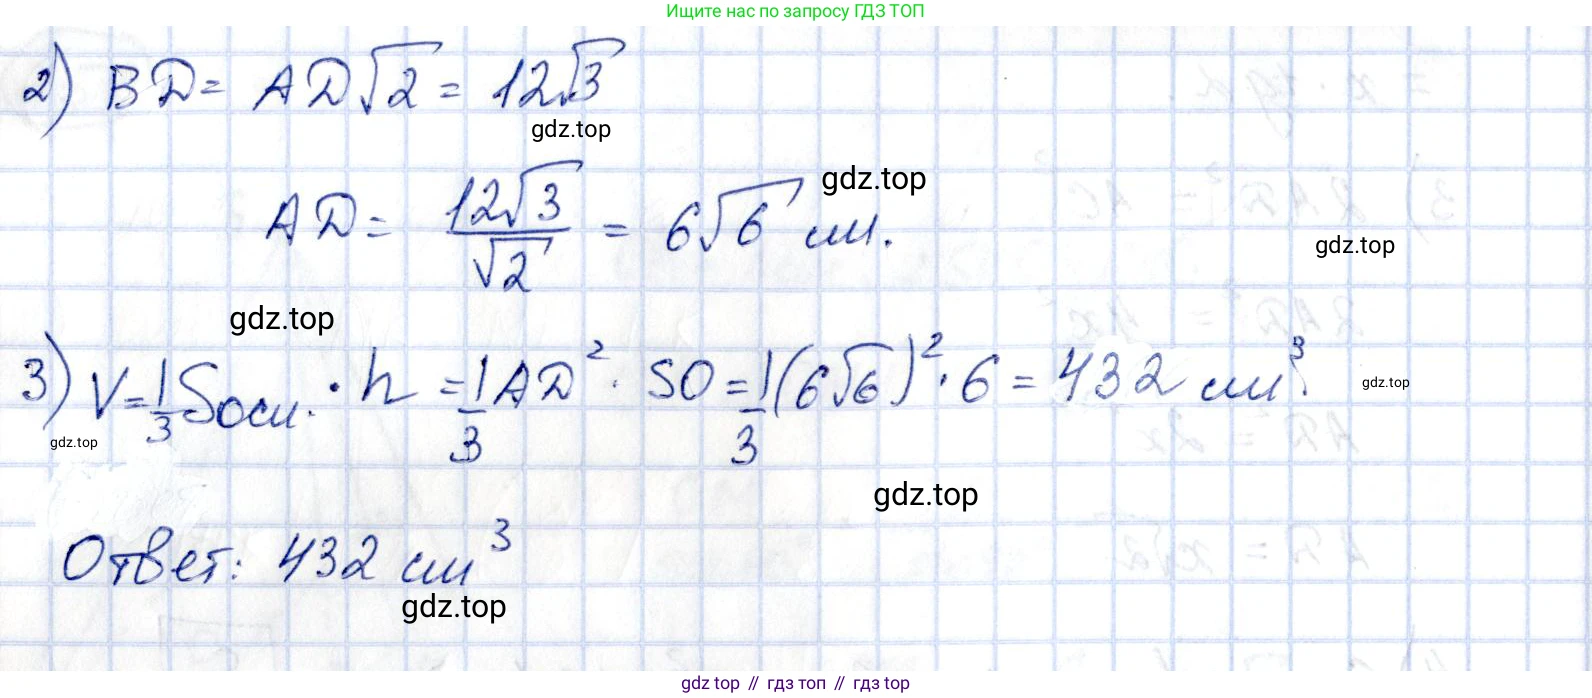 Ищите нас по запросу ГДЗ ТОП
2) BD = AD√2 = 12√3
gdz.top
gdz.top
AD = 12√3/√2 = 6√6 см.
gdz.top
gdz.top
3) V = 1/3 Sосн. · h = 1/3 AD² · SO = 1/3 (6√6)² · 6 = 432 см³.
gdz.top
gdz.top
gdz.top
Ответ: 432 см³
gdz.top
gdz top // гдз топ // gdz top